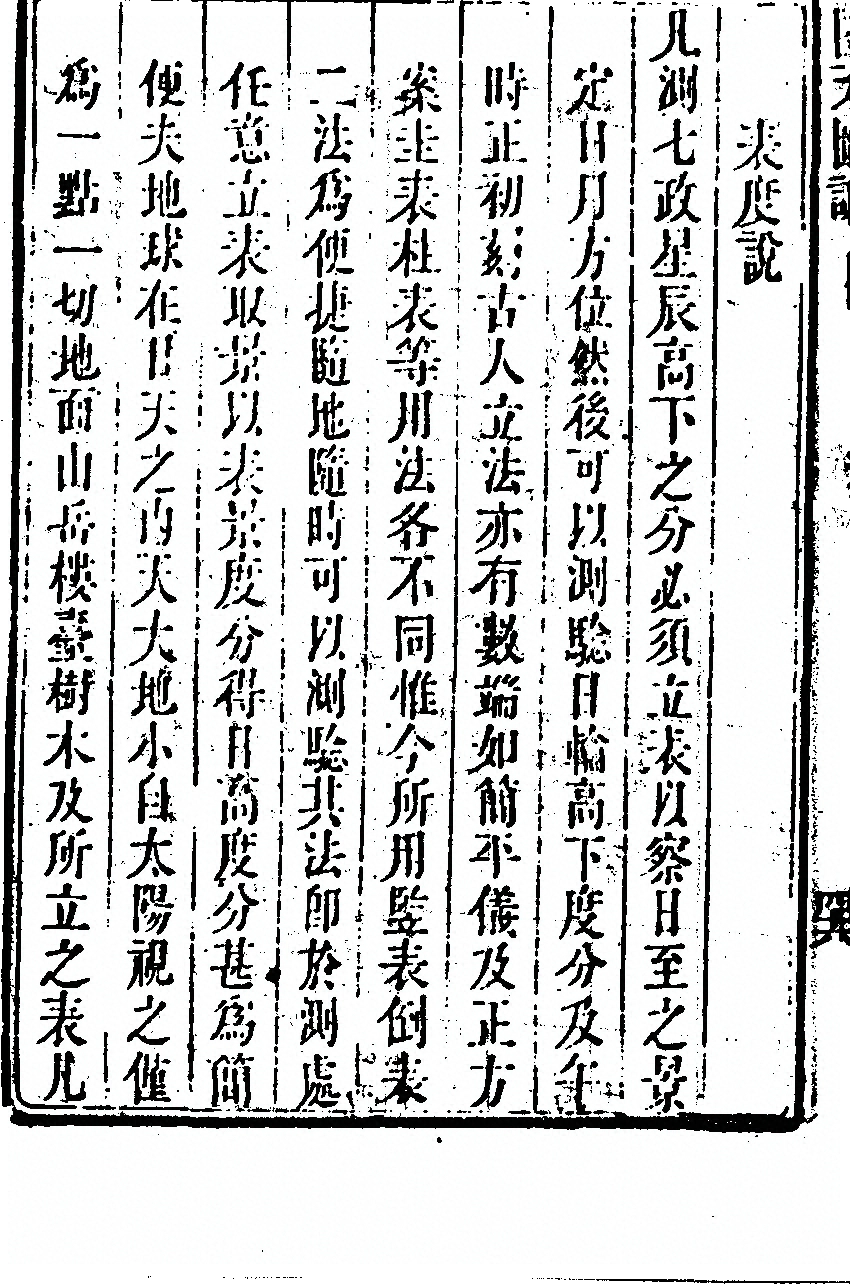 表度說
凡測七政星辰高下之分必須立表以察日至之景
定日月方位然後可以測驗日輪高下度分及午
時正初刻古人立法亦有數端如簡平儀及正方
案圭表柱表等用法各不同惟今所用豎表倒表
二法爲便捷隨地隨時可以測驗其法卽於測處
任意立表取景以表景度分得日高度分甚爲簡
便夫地球在日天之內天大地小自太陽視之僅
爲一點一切地面山岳樓臺樹木及所立之表凡